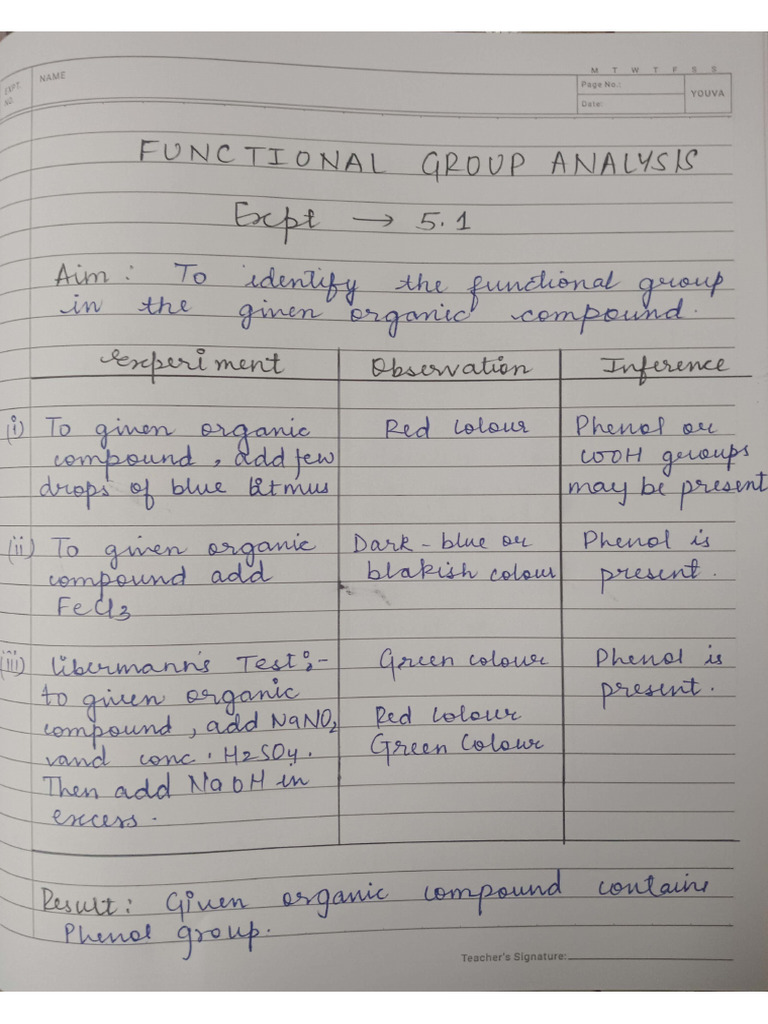 M T W T F S S
EXPT. NO.
NAME
Page No.:
YOUVA
Date:
FUNCTIONAL GROUP ANALYSIS
Expt → 5.1
Aim : To identify the functional group
in the given organic compound.
Experiment Observation Inference
(i) To given organic Red colour Phenol or
compound, add few COOH groups
drops of blue litmus may be present
(ii) To given organic Dark-blue or Phenol is
compound add blakish colour present.
FeCl3
(iii) Libermann's Test:- Green colour Phenol is
to given organic present.
compound, add NaNO2 Red colour
and conc. H2SO4. Green Colour
Then add NaOH in
excess.
Result: Given organic compound contains
Phenol group.
Teacher's Signature: